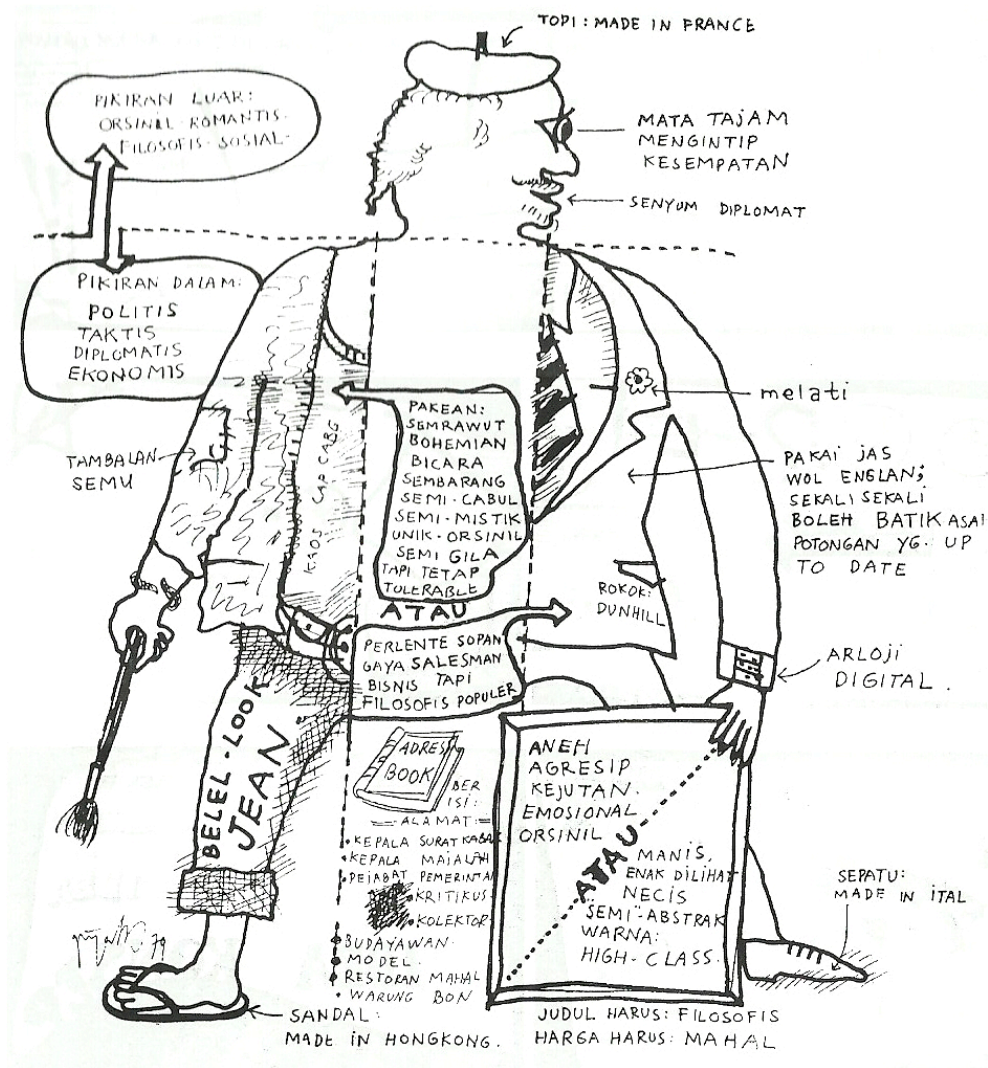 TOPI : MADE IN FRANCE
PIKIRAN LUAR:
ORSINIL · ROMANTIS ·
FILOSOFIS · SOSIAL ·
MATA TAJAM
MENGINTIP
KESEMPATAN
SENYUM DIPLOMAT
PIKIRAN DALAM:
POLITIS
TAKTIS
DIPLOMATIS
EKONOMIS
melati
PAKEAN:
SEMRAWUT
BOHEMIAN
BICARA
SEMBARANG
SEMI-CABUL
SEMI-MISTIK
UNIK-ORSINIL
SEMI GILA
TAPI TETAP
TOLERABLE
TAMBALAN
SEMU
KAOS CAP CABG
PAKAI JAS
WOL ENGLAN;
SEKALI SEKALI
BOLEH BATIK ASAL
POTONGAN YG. UP
TO DATE
ATAU
ROKOK:
DUNHILL
PERLENTE SOPAN
GAYA SALESMAN
BISNIS TAPI
FILOSOFIS POPULER
ARLOJI
DIGITAL.
BELEL-LOOK
JEAN
ADRES
BOOK
BER
ISI:
ALAMAT:
• KEPALA SURAT KABAR
• KEPALA MAJALAH
• PEJABAT PEMERINTAH
• KRITIKUS
• KOLEKTOR
• BUDAYAWAN
• MODEL
• RESTORAN MAHAL
• WARUNG BON
ANEH
AGRESIP
KEJUTAN.
EMOSIONAL
ORSINIL
ATAU
MANIS,
ENAK DILIHAT
NECIS
SEMI-ABSTRAK
WARNA:
HIGH-CLASS.
SEPATU:
MADE IN ITAL
79
SANDAL:
MADE IN HONGKONG.
JUDUL HARUS: FILOSOFIS
HARGA HARUS: MAHAL